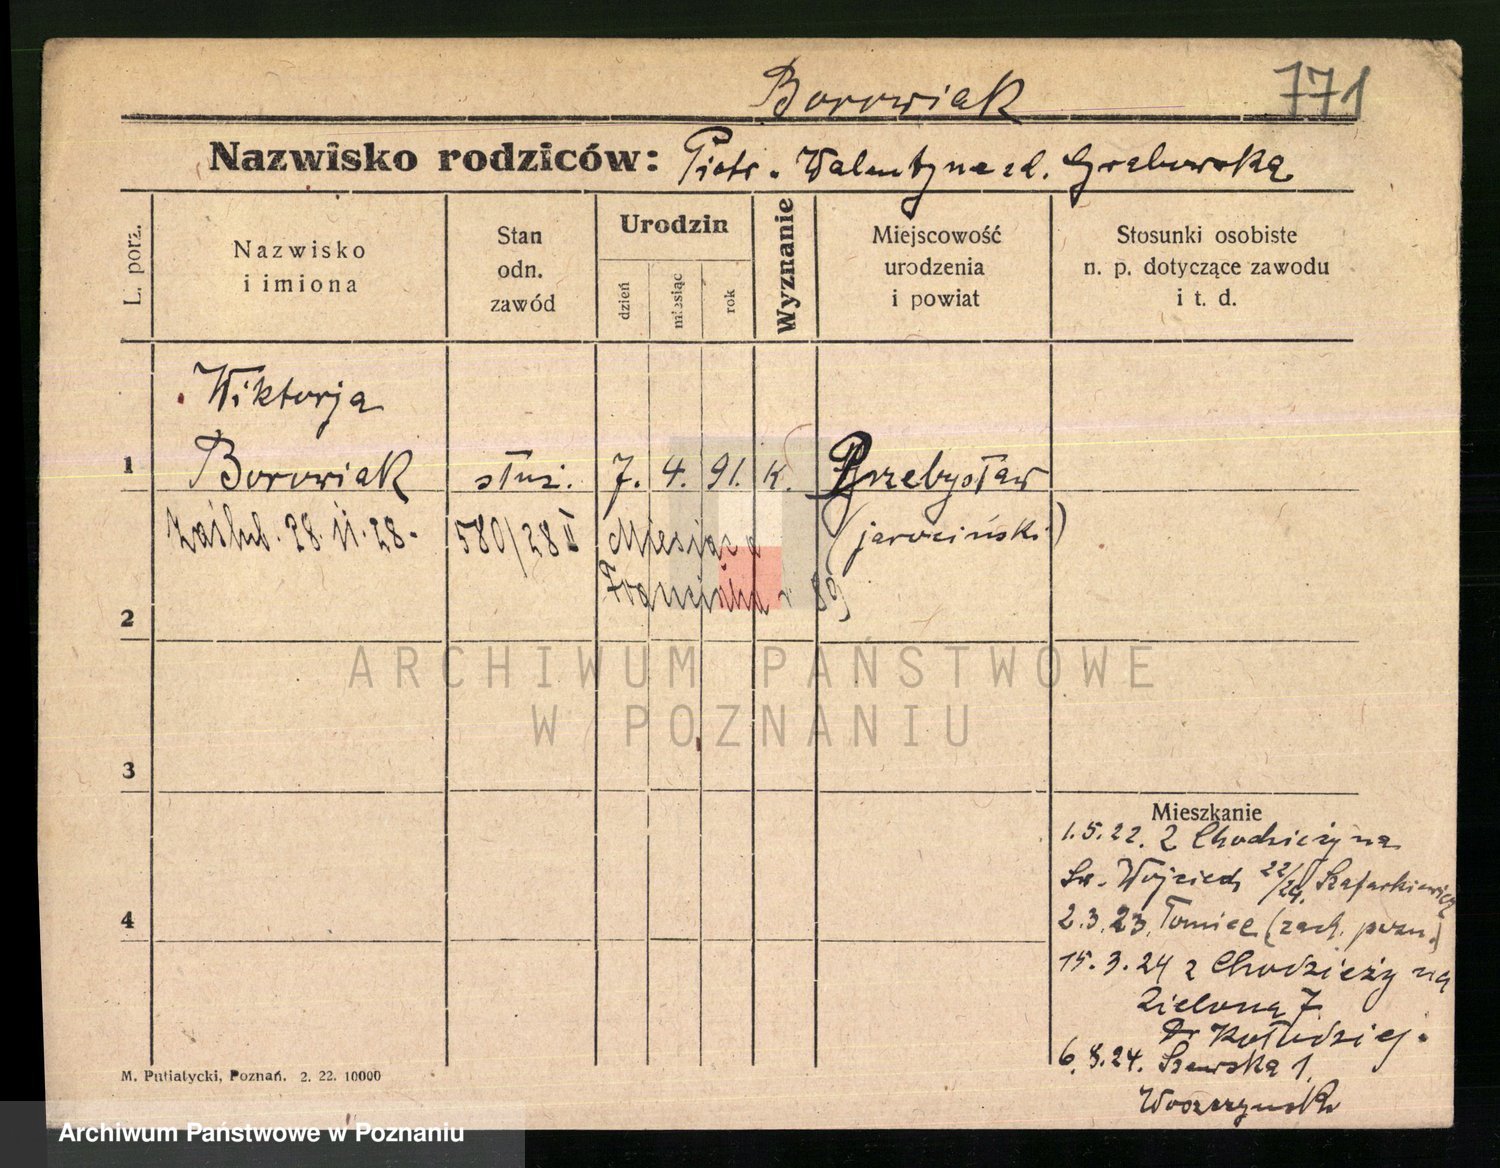 Borowiak 771
Nazwisko rodziców: Piotr. Walentyna zd. Grabowska
L. porz.
Nazwisko
i imiona
Stan
odn.
zawód
Urodzin
dzień
miesiąc
rok
Wyznanie
Miejscowość
urodzenia
i powiat
Stosunki osobiste
n. p. dotyczące zawodu
i t. d.
Wiktorja
1 Borowiak służ. 7. 4. 91. K. Przebysław
zaślub. 28. II. 28. 580/28 II (jarociński)
Franciszka 89
2
ARCHIWUM PAŃSTWOWE
W POZNANIU
3
Mieszkanie
1.5.22. z Chodzieży na
Św. Wojciech 22/24. Szafarkiewicz
4
2.3.23. Tomice (zach. pozn.)
15.3.24 z Chodzieży na
Zieloną 7
Kołodziej.
6.8.24. Szewska 1,
M. Putiatycki, Poznań. 2. 22. 10000
Archiwum Państwowe w Poznaniu